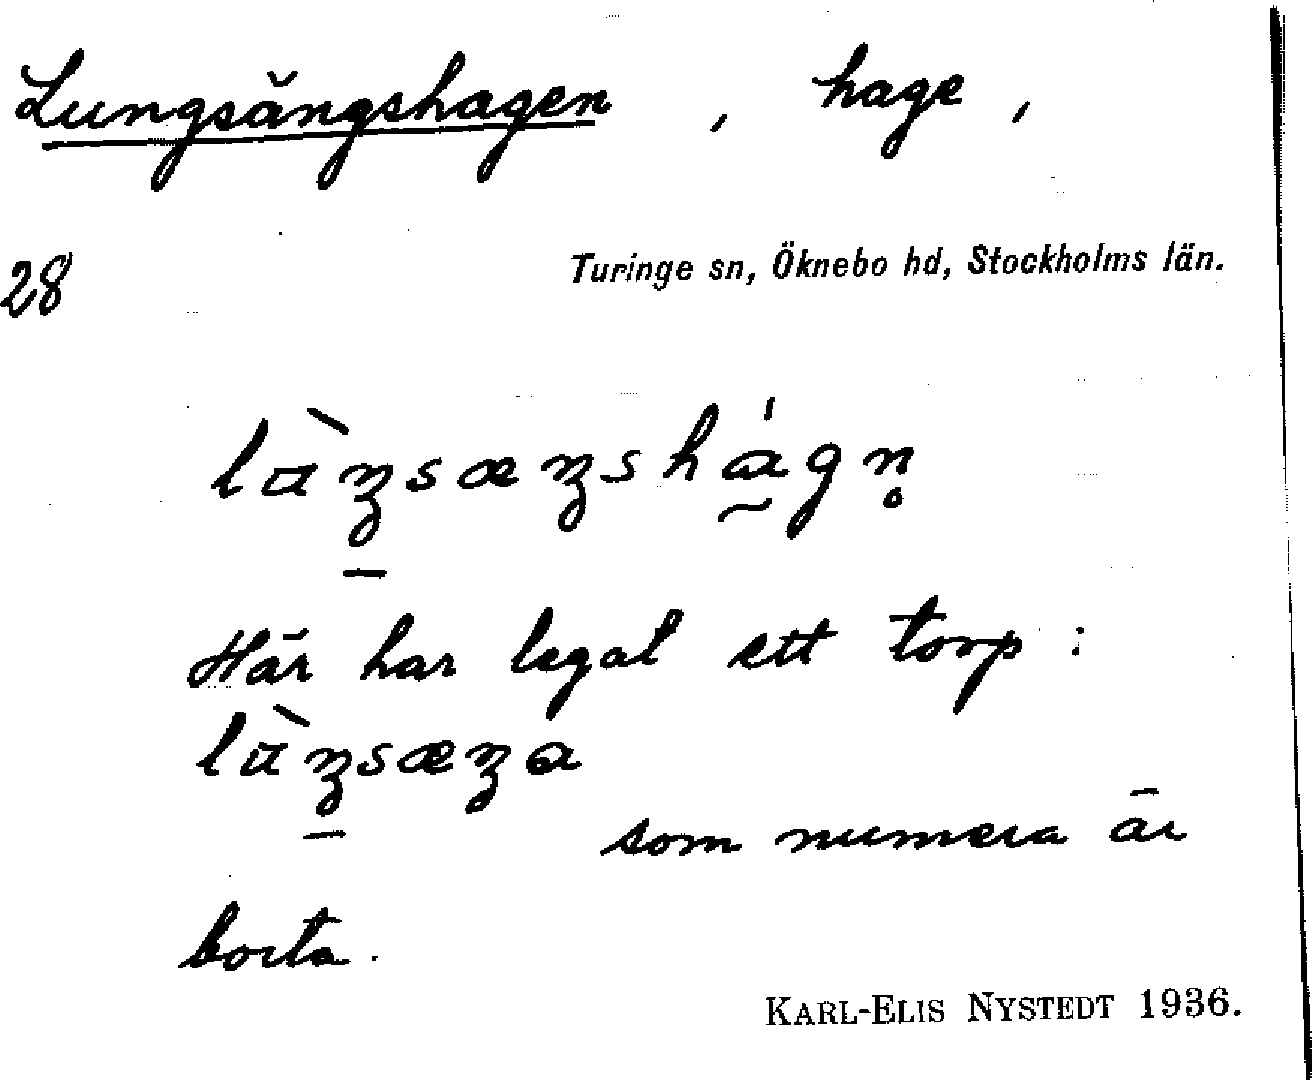 Lungsängshagen, hage,
28 Turinge sn, Öknebo hd, Stockholms län.
Här har legat ett torp:
som numera är
borta.
KARL-ELIS NYSTEDT 1936.